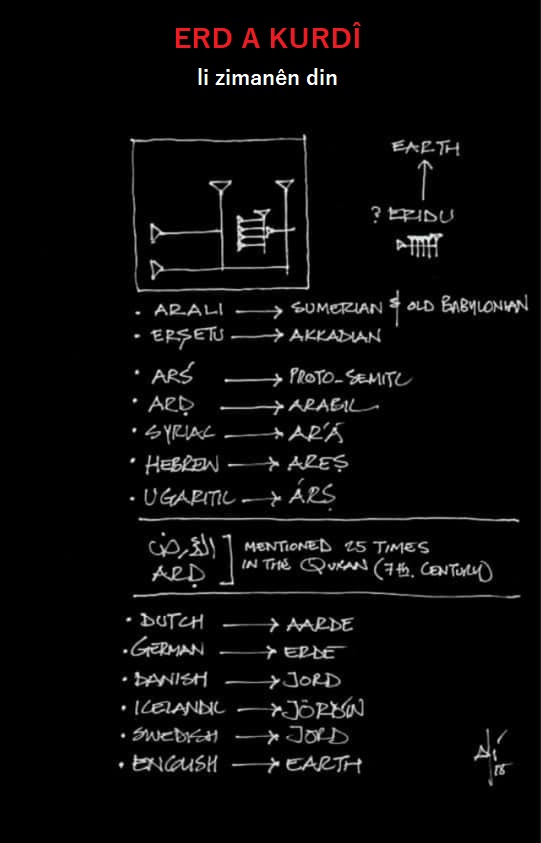 ERD A KURDÎ
li zimanên din
EARTH
? ERIDU
• ARALI → SUMERIAN & OLD BABYLONIAN
• ERṢETU → AKKADIAN
• ARṢ́ → PROTO-SEMITIC
• ARḌ → ARABIC
• SYRIAC → AR'Ā
• HEBREW → AREṢ
• UGARITIC → ÁRṢ
الأرض
ARḌ
MENTIONED 25 TIMES
IN THE QURAN (7th. CENTURY)
• DUTCH → AARDE
• GERMAN → ERDE
• DANISH → JORD
• ICELANDIC → JÖRÐIN
• SWEDISH → JORD
• ENGLISH → EARTH